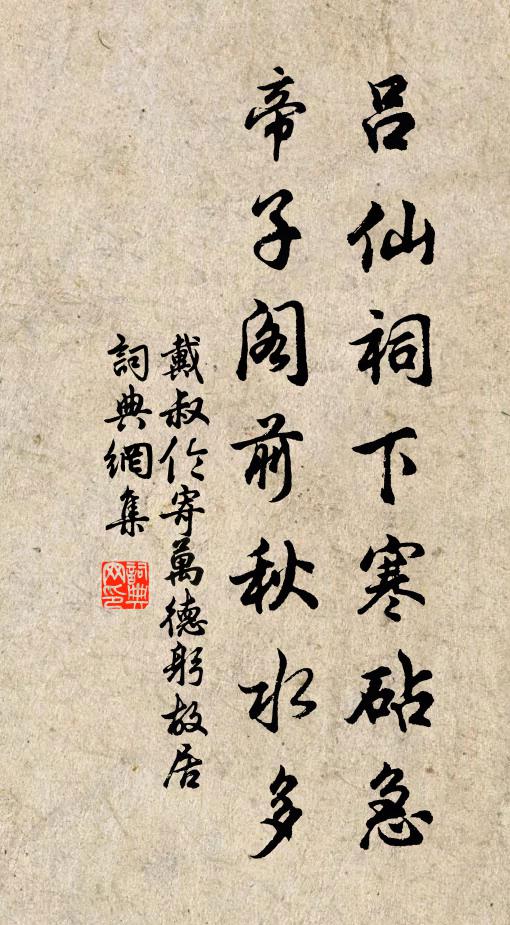 吕仙祠下寒砧急
帝子阁前秋水多
戴叔伦寄萬德躬故居
詞典網集
詞典网印